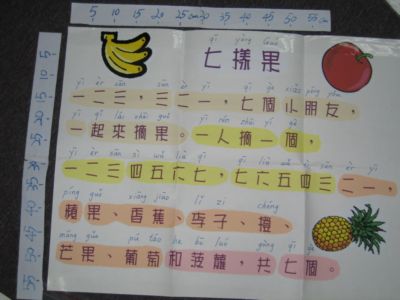 5 10 15 20 25 30 35 40 45 50 55
qī yàng guǒ
七樣果
yī èr sān sān èr yī qī gè xiǎo péng yǒu
一二三，三二一，七個小朋友，
yī qǐ lái zhāi guǒ yī rén zhāi yī gè
一起來摘果。一人摘一個，
yī èr sān sì wǔ liù qī qī liù wǔ sì sān èr yī
一二三四五六七，七六五四三二一，
píng guǒ xiāng jiāo lǐ zi chéng
蘋果、香蕉、李子、橙、
máng guǒ pú táo hé bō luó gòng qī gè
芒果、葡萄和菠蘿，共七個。
5 10 15 20 25 30 35 40 45 50 55